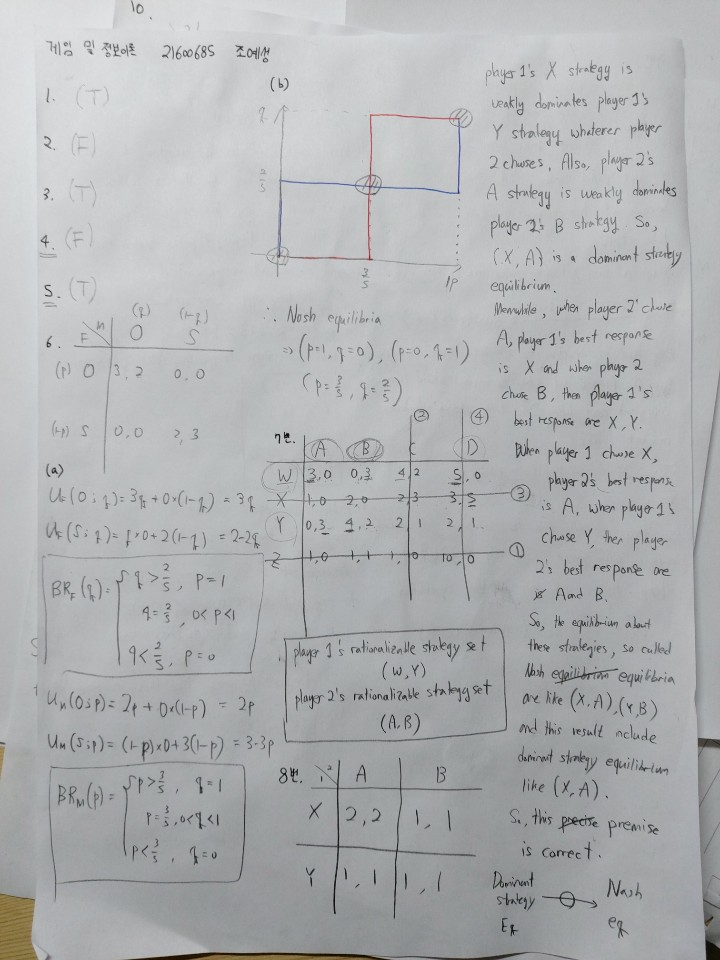 10.
게임 및 정보이론 21600685 조예성
1. (T)
2. (F)
3. (T)
4. (F)
5. (T)
6.
F M
(q) (1-q)
O S
(p) O 3, 2 0, 0
(1-p) S 0, 0 2, 3
(a)
U_F(O; q) = 3q + 0×(1-q) = 3q
U_F(S; q) = q×0 + 2(1-q) = 2-2q
BR_F(q) = { q > 2/5, p = 1
q = 2/5, 0 < p < 1
q < 2/5, p = 0
U_M(O; p) = 2p + 0×(1-p) = 2p
U_M(S; p) = (1-p)×0 + 3(1-p) = 3-3p
BR_M(p) = { p > 3/5, q = 1
p = 3/5, 0 < q < 1
p < 3/5, q = 0
(b)
q
2/5
3/5
1p
∴ Nash equilibria
⇒ (p=1, q=0), (p=0, q=1)
(p = 3/5, q = 2/5)
7번.
② ④
A B C D
W 3,0 0,3 4,2 5,0
X 1,0 2,0 2,3 3,5 ③
Y 0,3 4,2 2 1 2, 1
Z 1,0 1,1 1,0 10,0 ①
player 1's rationalizable stategy set
(W, Y)
player 2's rationalizable stategy set
(A, B)
8번.
1 2 A B
X 2, 2 1, 1
Y 1, 1 1, 1
player 1's X strategy is
weakly dominates player 1's
Y strategy whatever player
2 chooses, Also, player 2's
A strategy is weakly dominates
player 2's B strategy. So,
(X, A) is a dominant strategy
equilibrium.
Meanwhile, when player 2 chose
A, player 1's best response
is X and when player 2
chose B, then player 1's
best response are X, Y.
When player 1 chose X,
player 2's best response
is A, when player 1's
chose Y, then player
2's best response are
A and B.
So, the equilibrium about
these strategies, so called
Nash equilibrium equilibria
are like (X, A), (Y, B)
and this result include
dominant strategy equilibrium
like (X, A).
So, this precise premise
is correct.
Dominant
strategy
Eq
→ Nash
eq